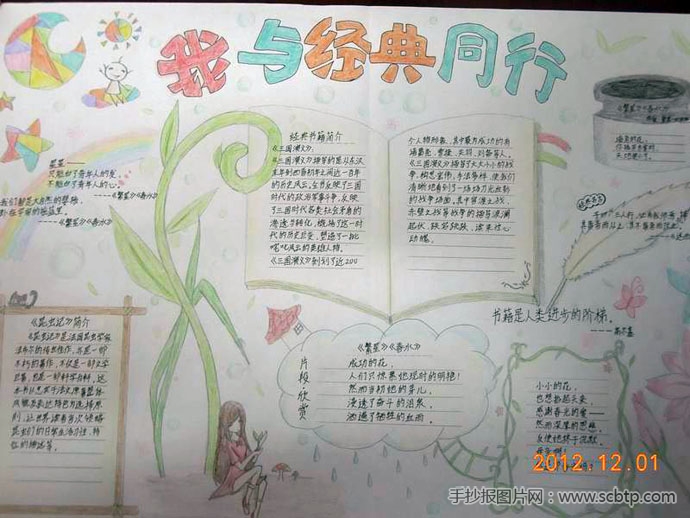 我与经典同行
《繁星》《春水》
墙角的花,
你孤芳自赏时,
天地便小了。
繁星——
只能如了青年人的眼,
不能如了青年人的心。
我们都是大自然的婴孩,
卧在宇宙的摇篮里。
——《繁星》《春水》
经典书籍简介
《三国演义》
《三国演义》描写的是从东汉
末年到西晋初年之间近一百年
的历史风云,全书反映了三国
时代的政治军事斗争,反映
了三国时代各类社会矛盾的
渗透与转化,概括了这一时
代的历史巨变,塑造了一批
叱咤风云的英雄人物。
《三国演义》刻划了近200
个人物形象,其中最为成功的有
诸葛亮、曹操、关羽、刘备等人。
《三国演义》描写了大大小小的战
争,构思宏伟,手法多样,使我们
清晰地看到了一场场刀光血影
的战争场面,其中官渡之战、
赤壁之战等战争的描写波澜
起伏、跌宕跌宕,读来惊心
动魄。
书籍是人类进步的阶梯。
——高尔基
《昆虫记》简介
《昆虫记》是法国昆虫学家
法布尔的传世佳作,亦是一部
不朽的著作,不仅是一部文学
巨著,也是一部科学百科,这
片段欣赏
《繁星》《春水》
成功的花,
人们只惊羡她现时的明艳!
然而当初她的芽儿,
浸透了奋斗的泪泉,
洒遍了牺牲的血雨。
小小的花,
也想抬起头来,
感谢春光的爱——
然而深厚的恩慈,
反使他终于沉默。
2012.12.01
手抄报图片网:www.scbtp.com